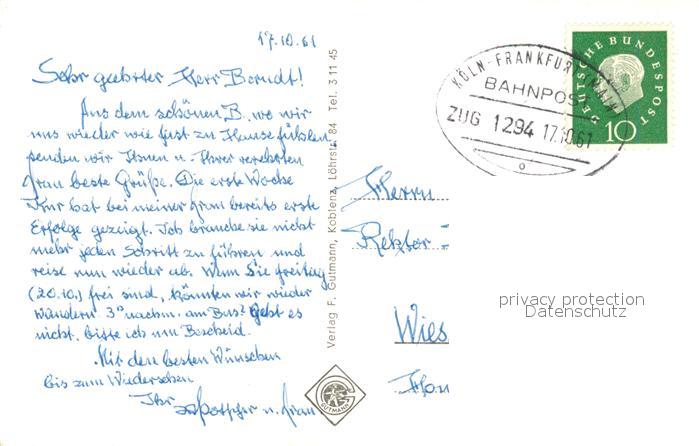 17.10.61
Sehr geehrter Herr Berndt!
Aus dem schönen B. wo wir
uns wieder wie fest zu Hause fühlen,
senden wir Ihnen u. Ihrer verehrten
Frau beste Grüße. Die erste Woche
Kur hat bei meiner Frau bereits erste
Erfolge gezeigt. Ich brauche sie nicht
mehr jeden Schritt zu führen und
reise nun wieder ab. Wenn Sie Freitag
(20.10.) frei sind, könnten wir wieder
wandern 3° nachm. am Bus? Geht es
nicht, bitte ich um Bescheid.
Mit den besten Wünschen
bis zum Wiedersehen
Ihr u. Frau
Verlag F. Gutmann, Koblenz, Löhrstr. 84 Tel. 3 11 45
GUTMANN
KÖLN-FRANKFURT (MAIN)
BAHNPOST
ZUG 1294 17.10.61
DEUTSCHE BUNDESPOST
10
Herrn
Rektor
Wies
privacy protection
Datenschutz